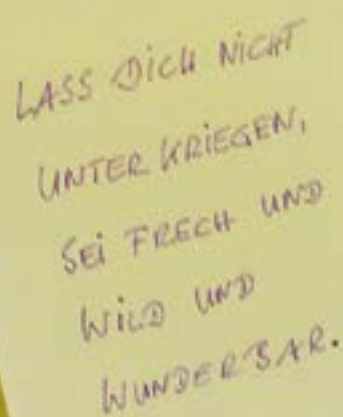 LASS DICH NICHT
UNTER KRIEGEN,
SEI FRECH UND
WILD UND
WUNDERBAR.